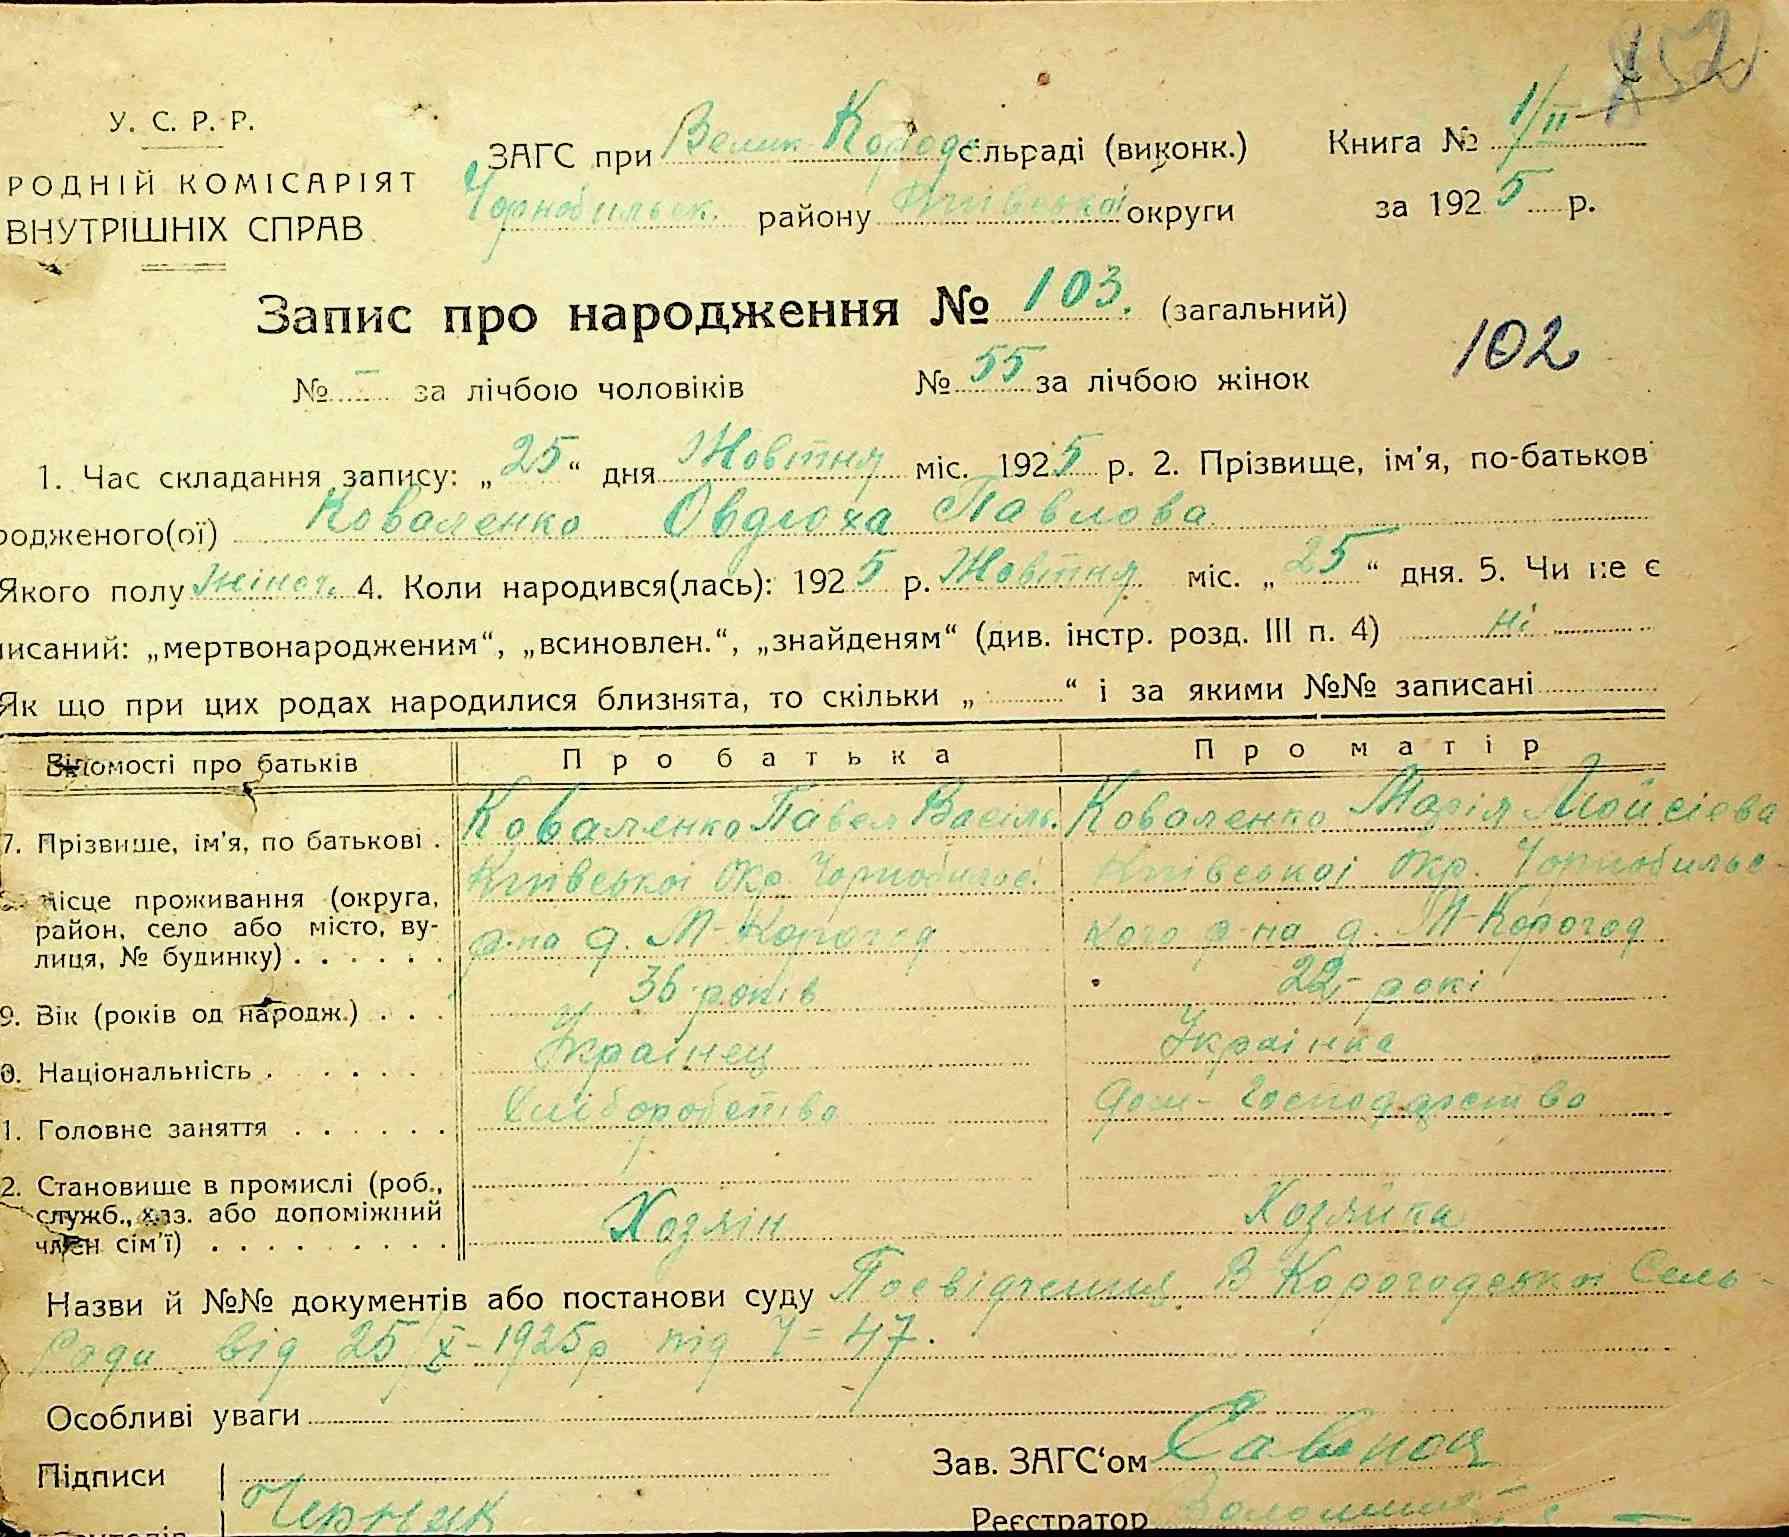 У. С. Р. Р.
РОДНІЙ КОМІСАРІЯТ
ВНУТРІШНІХ СПРАВ
ЗАГС при Велик Корогод сільраді (виконк.)
Чорнобильськ. району Київської округи
Книга № 1/II
за 1925 р.
Запис про народження № 103. (загальний)
102
№ - за лічбою чоловіків № 55 за лічбою жінок
1. Час складання запису: „25“ дня Жовтня міс. 1925 р. 2. Прізвище, ім'я, по-батьков
родженого(ої) Коваленко Овдюха Павлова
Якого полу жіноч. 4. Коли народився(лась): 1925 р. Жовтня міс. „25“ дня. 5. Чи не є
писаний: „мертвонародженим“, „всиновлен.“, „знайденям“ (див. інстр. розд. III п. 4) ні
Як що при цих родах народилися близнята, то скільки „ “ і за якими №№ записані
Відомості про батьків Про батька Про матір
7. Прізвише, ім'я, по батькові . Коваленко Павел Васіль. Коваленко Марія Мойсієва
місце проживання (округа, район, село або місто, вулиця, № будинку) Київської окр. Чорнобильс. р-на д. М-Корогод Київської окр. Чорнобильс-кого р-на д. М-Корогод
9. Вік (років од народж.) 36 років 22 - рокі
0. Національність Українец Українка
1. Головне заняття Хліборобство Дом- Господарство
2. Становише в промислі (роб., служб., хаз. або допоміжний член сім'ї) Хозяін Хозяйка
Назви й №№ документів або постанови суду Посвідчення В Корогодської Сель-
Ради від 25/X-1925р під Ч= 47.
Особливі уваги
Підписи
Зав. ЗАГС'ом
Реєстратор